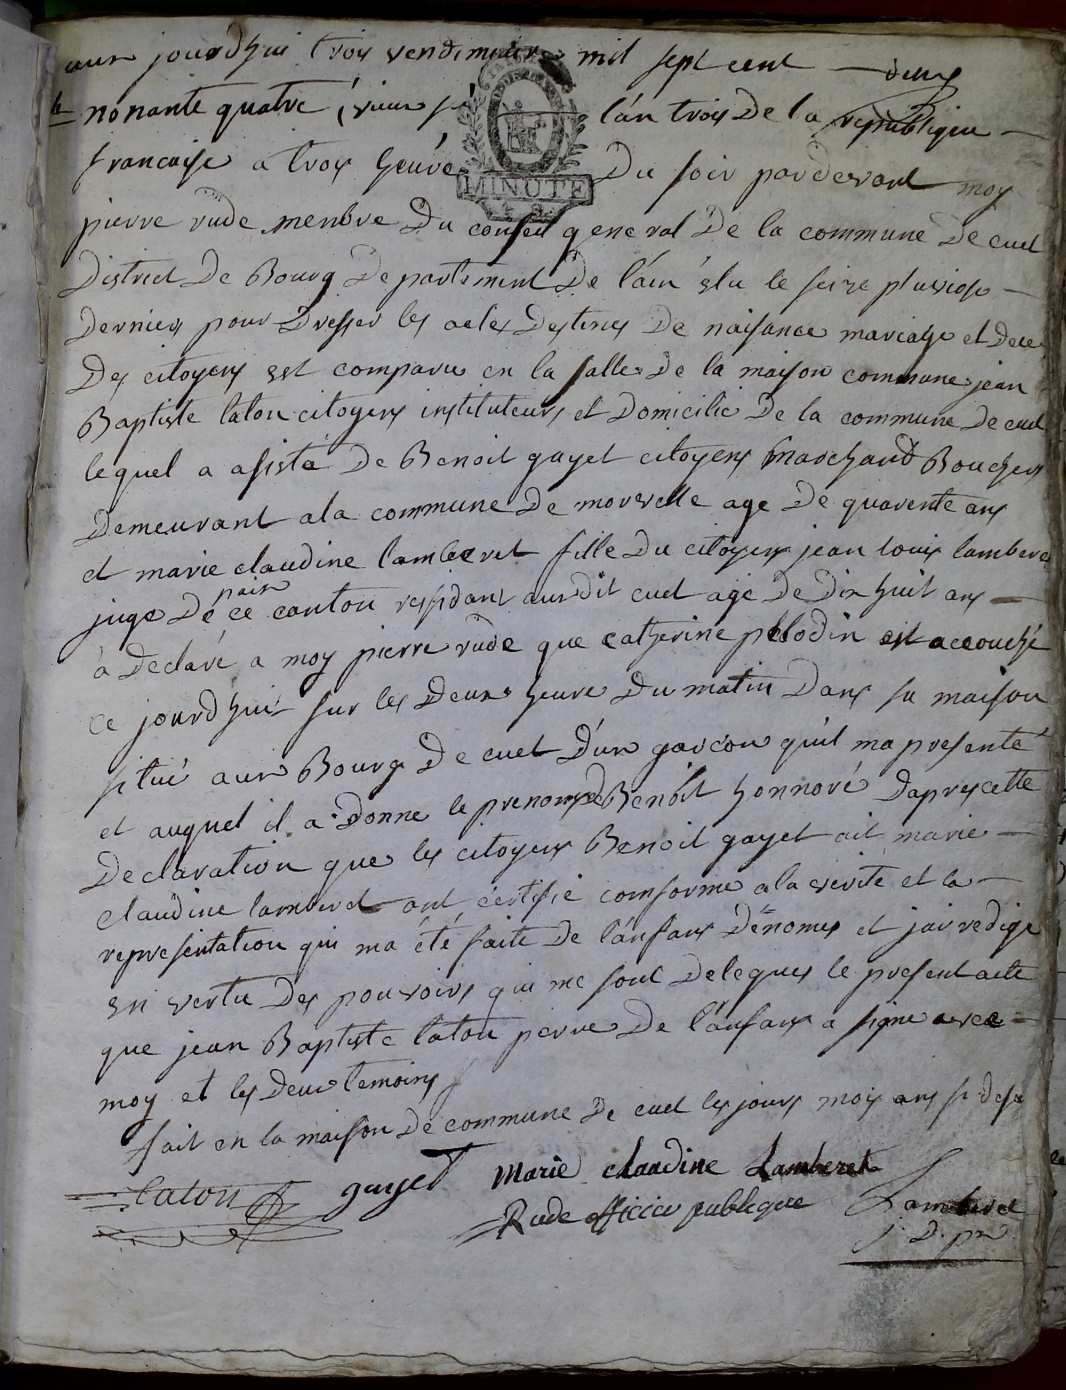 aux jourdhui trois vendemiaire mil sept cent deux
nonante quatre (vieux l'an trois de la republique
francaise a trois heure du soir pardevant moy
MINUTE
pierre rude menbre du conseil general de la commune de cuet
district de Bourg departement de l'ain elu le seize pluviose
dernier pour dresser les actes destines de naisance mariage et dece
des citoyens est comparu en la salle de la maison commune jean
Baptiste laton citoyens instituteurs et domicilie de la commune de cuet
lequel a asisté de Benoit gayet citoyens marchand Boucher
demeurant a la commune de morvelle age de quarente ans
et marie claudine lamberet fille du citoyens jean louis lamberet
juge de paix ce canton residant audit cuet age de dix huit ans
à déclaré a moy pierre rude que catherine pelodin est accouché
ce jourdhui sur les deux heure du matin dans sa maison
situé aux Bourg de cuet d'un garcon quil ma presenté
et auquel il a donne le prenoms de Benoit honnoré dapres cette
declaration que les citoyens Benoit gayet ait marie
claudine lamberet ont certifié comforme a la verite et la
representation qui ma été faite de l'anfans dénomés et jai redige
en vertu des pouvoirs qui me sont delegues le present acte
que jean Baptiste laton perre de l'anfans a signe avec
moy et les deux temoins
fait en la maison de commune de cuet les jours mois ans si desu
laton gayet Marie claudine Lamberet
Rude officier publique Lamberet
j. D. px